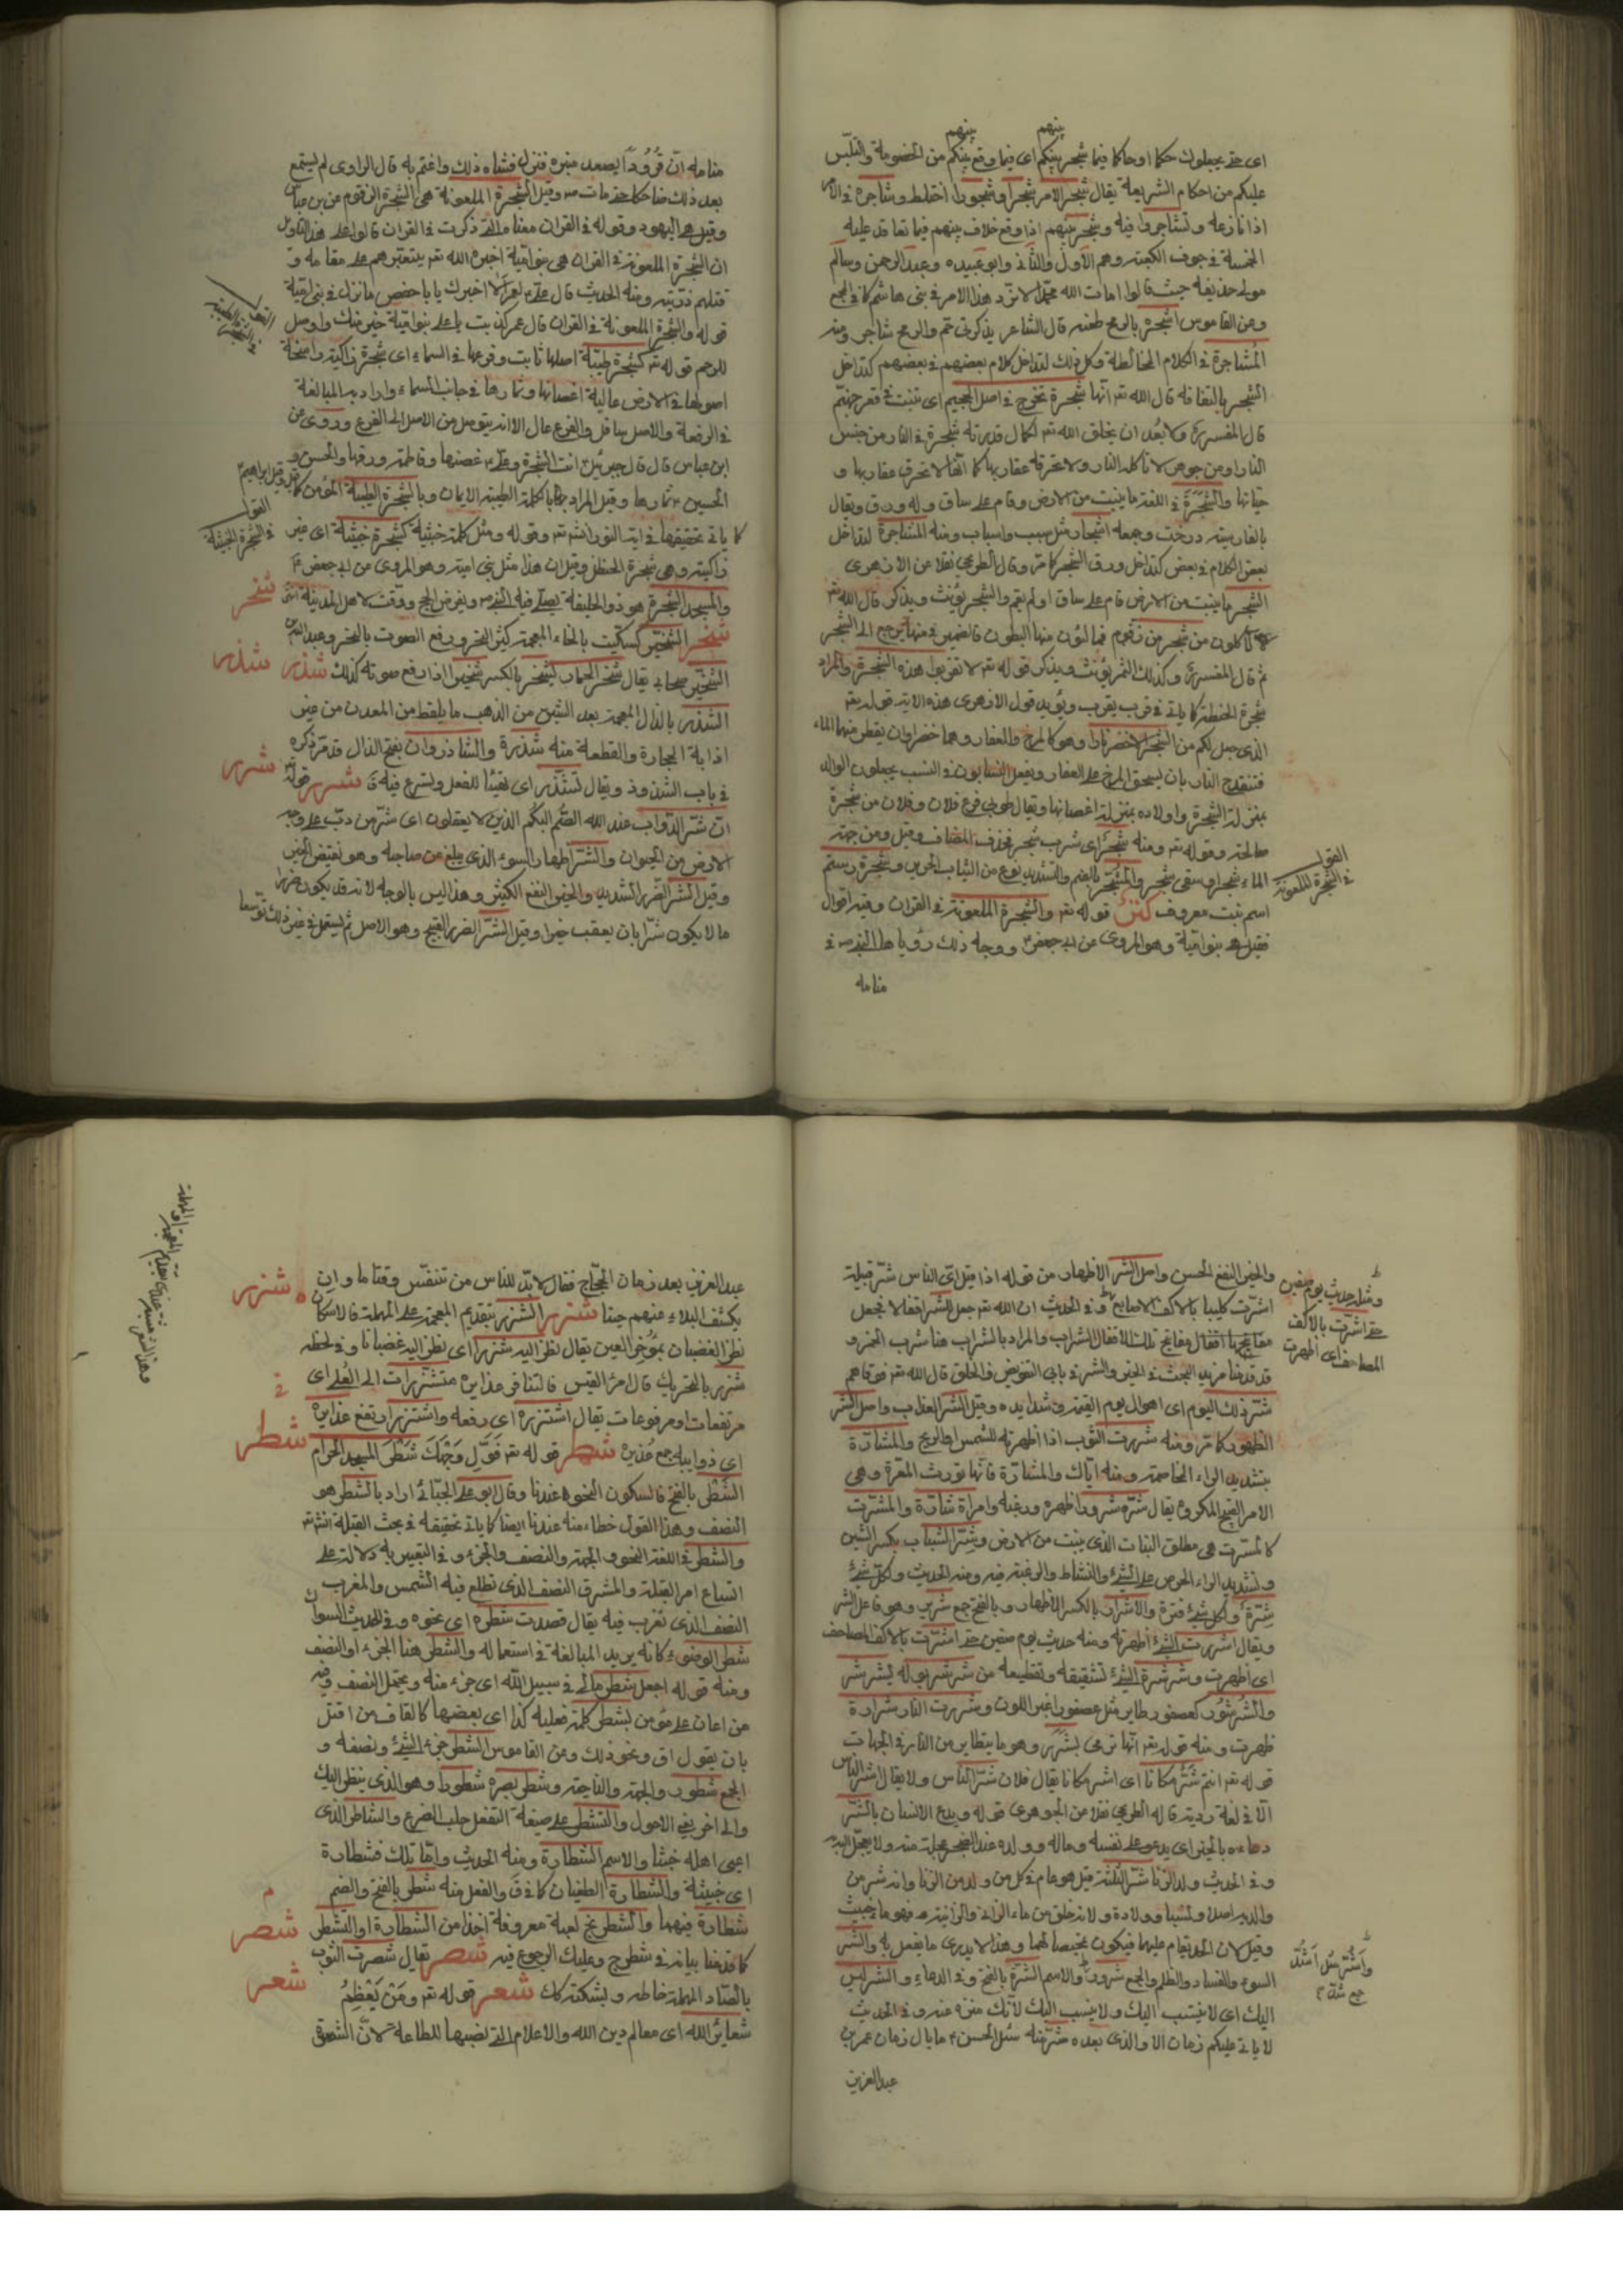 اى حتى يجعلوك حكما او حاكما فيما شجر بينكم اى فيما وقع بينكم من الخصومة والتلبّس
بينهم بينهم
عليكم من احكام الشريعة يقال شجر الامر شجرا وشجورا اختلط وشاجره فى الامر
اذا نازعه وتشاجروا فيه وشجر بينهم اذا وقع خلاف بينهم فيما تعاقد عليه
الخمسة فى جوف الكعبة وهم الاول والثانى وابو عبيده وعبد الرحمن وسالم
مولى حذيفة حيث قالوا امات الله محمدا لا نرد هذا الامر فى بنى هاشم كما فى المجمع
وعن القاموس اشجره بالرمح طعنه قال الشاعر يذكرنى حم والرمح شاجر ومنه
المشاجرة فى الكلام المخالطة وكل ذلك لتداخل كلام بعضهم فى بعضهم كتداخل
الشجر بالتفافه قال الله تم انها شجرة تخرج فى اصل الجحيم اى تنبت فى قعر جهنم
قال المفسرون ولا بعد ان يخلق الله تم لكمال قدرته شجرة فى النار من جنس
النار او من جوهر لا تأكله النار ولا تحرقه عقاربها كما انها لا تحرق عقاربها و
حياتها والشَجَرَة فى اللغة ما ينبت من الارض وقام على ساق وله ورق ويقال
بالفارسية درخت وجمعه اشجار مثل سبب واسباب ومنه المشاجرة لتداخل
بعض الكلام فى بعض كتداخل ورق الشجر كما مر وقال الطريحى نقلا من الازهرى
الشجر ما ينبت من الارض قام على ساق او لم يقم والشجر يؤنث ويذكر قال الله تم
لآكلون من شجر من زقوم فمالئون منها البطون فالضمير فى منها يرجع الى الشجر
ثم قال المفسرون وكذلك الثمر يؤنث ويذكر قوله تم لا تقربوا هذه الشجرة والمراد
شجرة الحنطة كما ياتى فى قرب يقرب ويؤيد قول الازهرى هذه الاية قوله تم
الذى جعل لكم من الشجر الاخضر نارا وهو كالمرخ والعفار وهما خضراوان يقطر منهما الماء
فتنقدح النار بان يسحق المرخ على العفار ويفعل النسابون فى النسب يجعلون الوالد
بمنزلة الشجرة واولاده بمنزلة اغصانها ويقال طوبى فرع فلان وفلان من شجرة
صالحة وقوله تم ومنه شجر اى شرب شجر فحذف المضاف وقيل ومن جهته
الماء شجر او سقى شجر والمشجّر بالضم والتشديد نوع من الثياب الحرير وشجرة رستم
اسم نبت معروف كنز قوله تم والشجرة الملعونة فى القرآن وفيه اقوال
القول فى الشجرة الملعونة
فقيل هم بنو امية وهو المروى عن ابى جعفر ووجه ذلك رؤيا رآها النبى ص فى
منامه
منامه انّ قُرُوداً يصعد منبره فنزل فساءه ذلك واغتم به قال الراوى لم يستمع
بعد ذلك ضاحكا حتى مات ص وقيل الشجرة الملعونة هى الشجرة الزقوم عن ابن عباس
وقيل هم اليهود وقوله فى القرآن معناه التى ذكرت فى القرآن قالوا على هذا التاويل
ان الشجرة الملعونة فى القرآن هى بنو امية اخبره الله تم بتغلبهم على مقامه و
قتلهم ذريته ومنه الحديث قال على ع لعمر الا اخبرك يا با حفص ما نزل فى بنى امية
قوله والشجرة الملعونة فى القرآن قال عمر كذبت يا على بنو امية خير منك واوصل
القول فى الشجرة الطيبة
للرحم قوله تم كشجرة طيبة اصلها ثابت وفرعها فى السماء اى شجرة زاكية راسخة
اصولها فى الارض عالية اغصانها وثمارها فى جانب السماء واراد به المبالغة
فى الرفعة والاصل سافل والفرع عال الا انه يتوصل من الاصل الى الفرع وروى عن
ابن عباس قال قال جبرئيل انت الشجرة وعلى ع غصنها وفاطمة ورقها والحسن و
الحسين ع ثمارها وقيل المراد بها بالكلمة الطيبة الايمان وبالشجرة الطيبة المؤمن
كما ياتى تحقيقها فى آية النور انشاء تم وقوله ومثل كلمة خبيثة كشجرة خبيثة اى غير
القول فى الشجرة الخبيثة
زاكية وهى شجرة الحنظل وقيل ان هذا مثل بنى امية وهو المروى عن ابى جعفر ع
والمسجد الشجرة هو ذو الحليفة يصلى فيه النبى ص وبفرض الحج ووقت لاهل المدينة انتهى
شخر
شخر الشخّير كسكّيت بالخاء المعجمة كثير النخر ورفع الصوت بالنخر وعبد الله بن
الشخير صحابى يقال شخر الحمار يشخر بالكسر شخيرا اذا رفع صوته كذلك شذر شذر
الشذر بالذال المعجمة بعد الشين من الذهب ما يلقط من المعدن من غير
اذابة الحجارة والقطعة منه شذرة والشاذروان بفتح الذال قد مر ذكره
فى باب الشين وذ ويقال تشذّر اى تهيّا للفعل وتسرع فيه شرر قوله تم شرر
انّ شرّ الدّواب عند الله الصّم البكم الذين لا يعقلون اى شرّ من دبّ على وجه
الارض من الحيوان والشر اظهار السوء الذى يبلغ من صاحبه وهو نقيض الخير
وقيل الشر الضرر الشديد والخير النفع الكثير وهذا ليس بالوجه لانه قد يكون ضررا
ما لا يكون شرّا بان يعقب خيرا وقيل الشر الضرر القبيح وهو الاصل ثم يستعمل فى غير ذلك توسعا
والخير النفع الحسن واصل الشر الاظهار من قوله اذا قيل اىّ الناس شرّ قبيلة
اشرّت كليبا بالاكف الاصابع وفى الحديث ان الله تم جعل للشر اقفالا فجعل
ومثله حديث يوم صفين حتى اشرّت بالاكف المصاحف اى اظهرت
مفاتيحها اقفال مفاتيح تلك الاقفال الشراب والمراد بالشراب هنا شرب الخمر و
قد قدمنا مزيد البحث فى الخير والشر فى بابى التفويض والخلق قال الله تم فوقاهم
شر ذلك اليوم اى اهوال يوم القيمة وشدايده وقيل الشر العذاب واصل الشر
الظهور كما مر ومنه شررت الثوب اذا اظهرته للشمس او الريح والمشارّة
بتشديد الراء المخاصمة ومنه اياك والمشارّة فانها تورث المعرّة وهى
الامر القبيح المكروه يقال شرّه شرورا اظهره ورغبه وامرأة شارّة والمشرّت
كالمسرت هى مطلق النبات الذى ينبت من الارض وشِرّ الشباب بكسر الشين
وتشديد الراء الحرص على الشئ والنشاط والرغبة فيه ومنه الحديث ولكل شئ
شِرّة ولكل شئ فترة والاشرار بالكسر الاظهار وبالفتح جمع شرير وهو فاعل الشر
ويقال اشررت الشئ اظهرته ومنه حديث يوم صفين حتى اشرّت بالاكف المصاحف
اى اظهرت وشرشرة الشئ تشقيقه وتقطيعه من شرشر بوله يشرشر
والشُرشُور كعصفور طاير مثل عصفور اغبر اللون وشررت النار شرارة
ظهرت ومنه قوله تم انها ترمى بشَرَر وهو ما يتطاير من النار فى الجهات
قوله تم انتم شرّ مكانا اى اشر مكانا يقال فلان شرّ الناس ولا يقال اشر الناس
الا فى لغة ردية قاله الطريحى نقلا من الجوهرى قوله ويدع الانسان بالشرّ
دعاءه بالخير اى يدعو على نفسه وماله وولده عند الضجر عجلة منه ولا يعجل الله
وفى الحديث ولد الزنا شرّ الثلثة قيل هو عام فى كل من ولد من الزنا وانه شر من
والديه اصلا ونسبا وولادة ولانه خلق من ماء الزانى والزانية وهو ماء خبيث
وقيل لان الحد يقام عليهما فيكون تمحيصا لهما وهذا لا يدرى ما يفعل به والشر
السوء والفساد والظلم والجمع شرور والاسم الشرّة بالفتح وفى الدعاء والشر ليس
واشرّ مثل اشدّ
اليك اى لا ينتسب اليك ولا ينسب اليك لانك منزه عنه وفى الحديث
لا ياتى عليكم زمان الا والذى بعده شرّ منه سئل الحسن ع ما بال زمان عمر بن
عبد العزيز
عبد العزيز بعد زمان الحجّاج فقال لا بدّ للناس من تنفّس وقتا ما وان
يكشف البلاء عنهم حينا شزر الشزر بتقديم المعجمة على المهملة فالاسكان
شزر
نظر الغضبان بمؤخر العين يقال نظر اليه شزرا اى نظر اليه غضبانا وفى لحظه
شزر بالتحريك قال امرء القيس قالتنا فى غدايره مستشزرات الى العُلى اى
مرتفعات او مرفوعات يقال اشتزره اى رفعه واشتزر ارتفع غدايره
اى ذوايبه جمع غديره شطر قوله تم فَوَلِّ وَجْهَكَ شَطْرَ المسجد الحرام
شطر
الشطر بالفتح فالسكون النحو ه عندنا وقال ابو على الجبّائى اراد بالشطر هو
النصف وهذا القول خطاء منه عندنا ايضا كما ياتى تحقيقه فى بحث القبلة انشاء تم
والشطر فى اللغة النحو والجهة والنصف والجزء وفى التعبير به دلالة على
اتساع امر القبلة والمشرق النصف الذى تطلع فيه الشمس والمغرب
النصف الذى تغرب فيه يقال قصدت شطره اى نحوه وفى الحديث السواك
شطر الوضوء كانه يريد المبالغة فى استعماله والشطر هنا الجزء او النصف
ومنه قوله اجعل شطر مالى فى سبيل الله اى جزء منه ويحتمل النصف وفيه
من اعان على مؤمن بشطر كلمة فعليه كذا اى بعضها كالقاف من اقتل
بان يقول اق ونحو ذلك وعن القاموس الشطر جزء الشئ ونصفه و
الجمع شطور والجهة والناحية وشطر بصره شطورا وهو الذى ينظر اليك
والى اخر يعنى الاحول والتشطر على صيغة التفعل حلب الضرع والشاطر الذى
اعيى اهله خبثا والاسم الشطارة ومنه الحديث وامّا تلك فشطارة
اى خبيثة والشطارة الطغيان كما فى ق والفعل منه شطر بالفتح والضم
شطارة فيهما والشطرنج لعبة معروفة اخذا من الشطارة او التشطر
كما قدمنا بيانه فى شطرج وعليك الرجوع فيه شصر يقال شصرت الثوب
شصر
بالصّاد المهملة خاطه و بشكته كاك شعر قوله تم ومَنْ يُعَظِّمْ
شعر
شعائر الله اى معالم دين الله والاعلام التى نصبها للطاعة لانّ الشعر